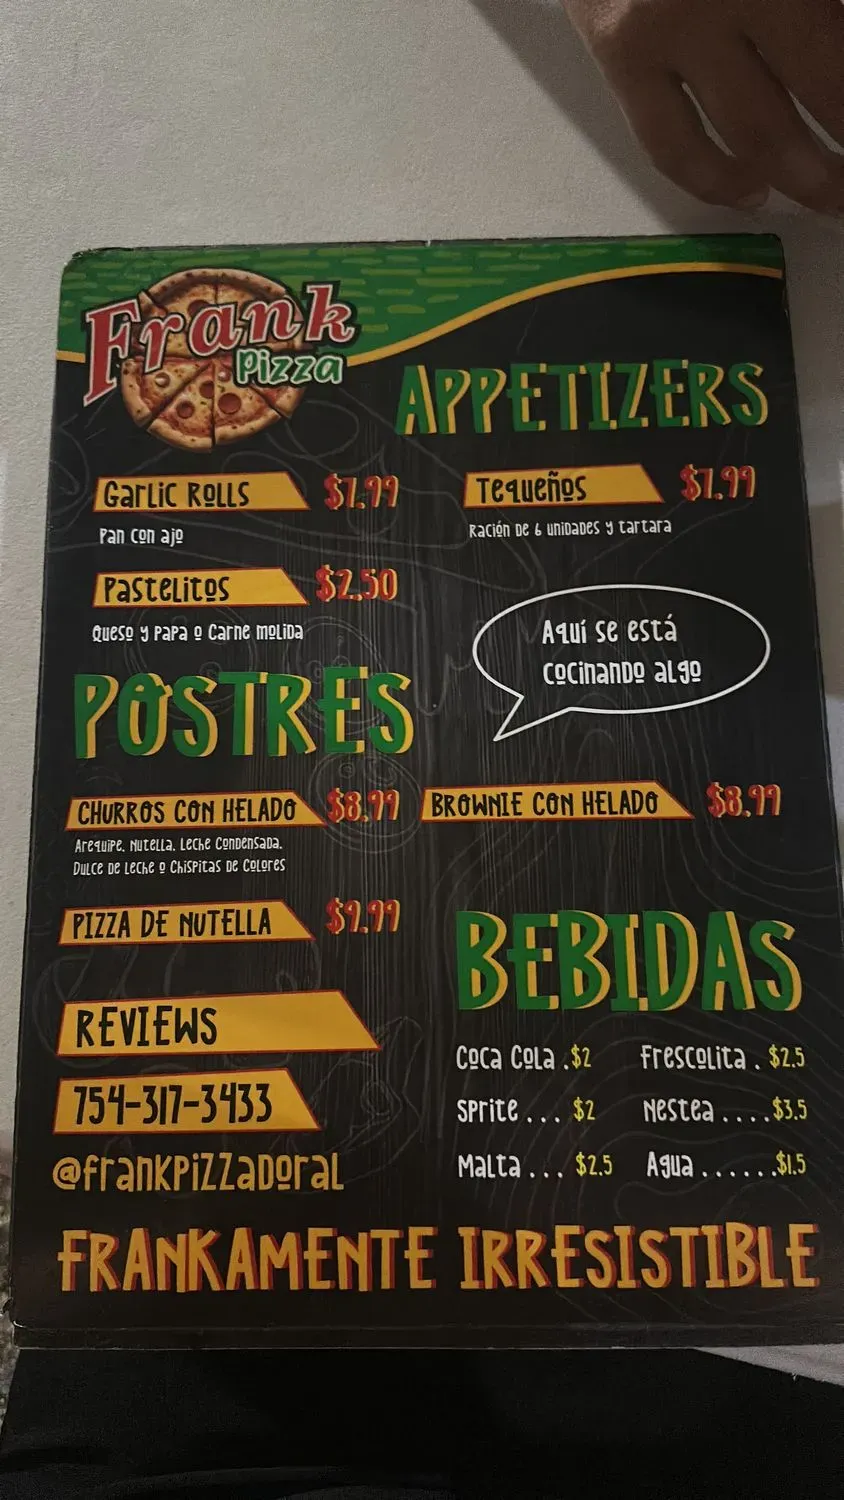 Frank
Pizza
APPETIZERS
Garlic Rolls $7.99
Pan con ajo
Tequeños $7.99
Ración de 6 unidades y tartara
Pastelitos $2.50
Queso y papa o carne molida
Aquí se está
cocinando algo
POSTRES
CHURROS CON HELADO $8.99
Arequipe, Nutella, Leche Condensada,
Dulce de leche o Chispitas de Colores
BROWNIE CON HELADO $8.99
PIZZA DE NUTELLA $9.99
BEBIDAS
Coca Cola . $2
Frescolita . $2.5
Sprite . . . $2
Nestea . . . . $3.5
Malta . . . $2.5
Agua . . . . . . $1.5
REVIEWS
754-317-3433
@frankpizzadoral
FRANKAMENTE IRRESISTIBLE